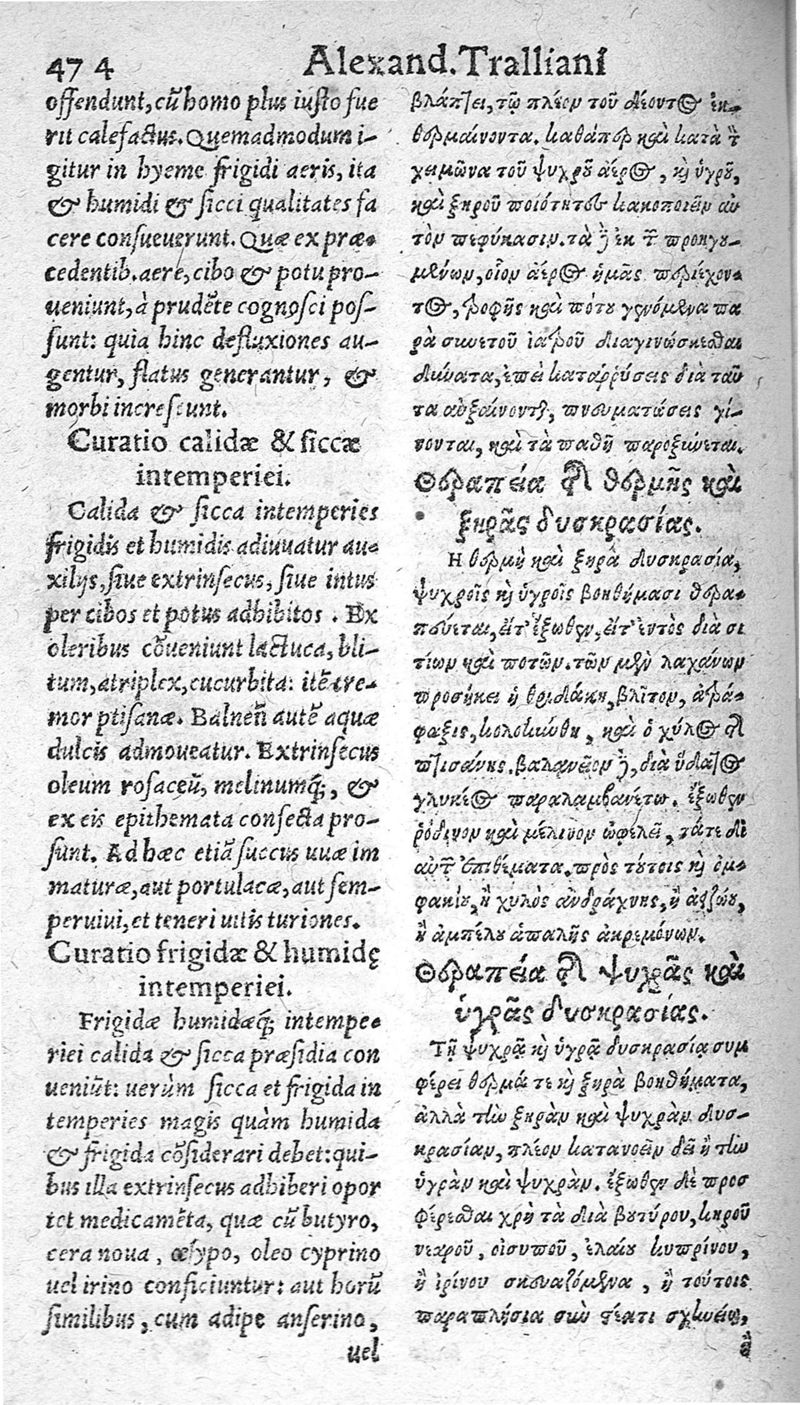 474
Alexand. Tralliani
offendunt, cũ homo plus iusto fue
rit calefactus. Quemadmodum i-
gitur in hyeme frigidi aeris, ita
& humidi & sicci qualitates fa
cere consueuerunt. Quæ ex præ-
cedentib. aere, cibo & potu pro-
ueniunt, à prudẽte cognosci pos-
sunt: quia hinc defluxiones au-
gentur, flatus generantur, &
morbi increscunt.
Curatio calidæ & siccæ
intemperiei.
Calida & sicca intemperies
frigidis et humidis adiuuatur au-
xilijs, siue extrinsecus, siue intus
per cibos et potus adhibitos. Ex
oleribus cõueniunt lactuca, bli-
tum, atriplex, cucurbita: itẽ cre-
mor ptisanæ. Balneũ autẽ aquæ
dulcis admoueatur. Extrinsecus
oleum rosaceũ, melinumq́;, &
ex eis epithemata confecta pro-
sunt. Ad hæc etiã succus uuæ im
maturæ, aut portulacæ, aut sem-
peruiui, et teneri uitis turiones.
Curatio frigidæ & humidę
intemperiei.
Frigidæ humidæq́; intempe-
riei calida & sicca præsidia con
ueniũt: uerùm sicca et frigida in
temperies magis quàm humida
& frigida cõsiderari debet: qui-
bus illa extrinsecus adhiberi opor
tet medicamẽta, quæ cũ butyro,
cera noua, œsypo, oleo cyprino
uel irino conficiuntur: aut horũ
similibus, cum adipe anserino,
uel
βλάπτει, τῷ πλέον τοῦ δέοντος ἐκ-
θερμαίνοντα. καθάπερ καὶ κατὰ τ̃
χειμῶνα τοῦ ψυχροῦ ἀέρος, κỳ ὑγροῦ,
καὶ ξηροῦ ποιότητες κακοποιεῖν αὐ
τὸν πεφύκασιν. τὰ δ' ἐκ τῶν προηγου-
μένων, οἷον ἀέρος ἡμᾶς περιέχον-
τος, τροφῆς καὶ πότου γενόμενα πα
ρὰ συνετοῦ ἰατροῦ διαγινώσκεσθαι
δύναται, ἐπεὶ καταῤῥύσεις διὰ ταῦ
τα αὐξαίνονται, πνευματώσεις γί-
νονται, καὶ τὰ πάθη παροξύνεται.
Θεραπεία τῆς θερμῆς καὶ
ξηρᾶς δυσκρασίας.
Η θερμὴ καὶ ξηρὰ δυσκρασία,
ψυχροῖς καὶ ὑγροῖς βοηθήμασι θερα-
πεύεται, εἴτ' ἔξωθεν, εἴτ' ἐντὸς διὰ σι
τίων καὶ ποτῶν. τῶν μὲν λαχάνων
προσήκει ἡ θριδάκη, βλῖτον, ἀτρά-
φαξις, κολοκύνθη, καὶ ὁ χύλος τῆς
πτισάνης. βαλανεῖον δ', διὰ ὕδατος
γλυκέος παραλαμβανέτω. ἔξωθεν
ῥόδινον καὶ μέλινον ὠφελεῖ, τάτε δι
αὐτῶν ἐπιθέματα. πρὸς τούτοις καὶ ὀμ-
φακίου, ἢ χυλὸς ἀνδράχνης, ἢ ἀειζώου,
ἢ ἀμπέλου ἁπαλῆς ἀκρεμόνων.
Θεραπεία τῆς ψυχρᾶς καὶ
ὑγρᾶς δυσκρασίας.
Τῇ ψυχρᾷ καὶ ὑγρᾷ δυσκρασίᾳ συμ
φέρει θερμά τε καὶ ξηρὰ βοηθήματα,
ἀλλὰ τὴν ξηρὰν καὶ ψυχρὰν δυσ-
κρασίαν, πλέον κατανοεῖν δεῖ ἢ τὴν
ὑγρὰν καὶ ψυχράν. ἔξωθεν δὲ προσ
φέρεσθαι χρὴ τὰ διὰ βουτύρου, κηροῦ
νεαροῦ, οἰσυποῦ, ἐλαίου κυπρίνου,
ἢ ἰρίνου σκευαζόμενα, ἢ τούτοις
παραπλήσια σὺν στέατι χηνείῳ,
ἢ